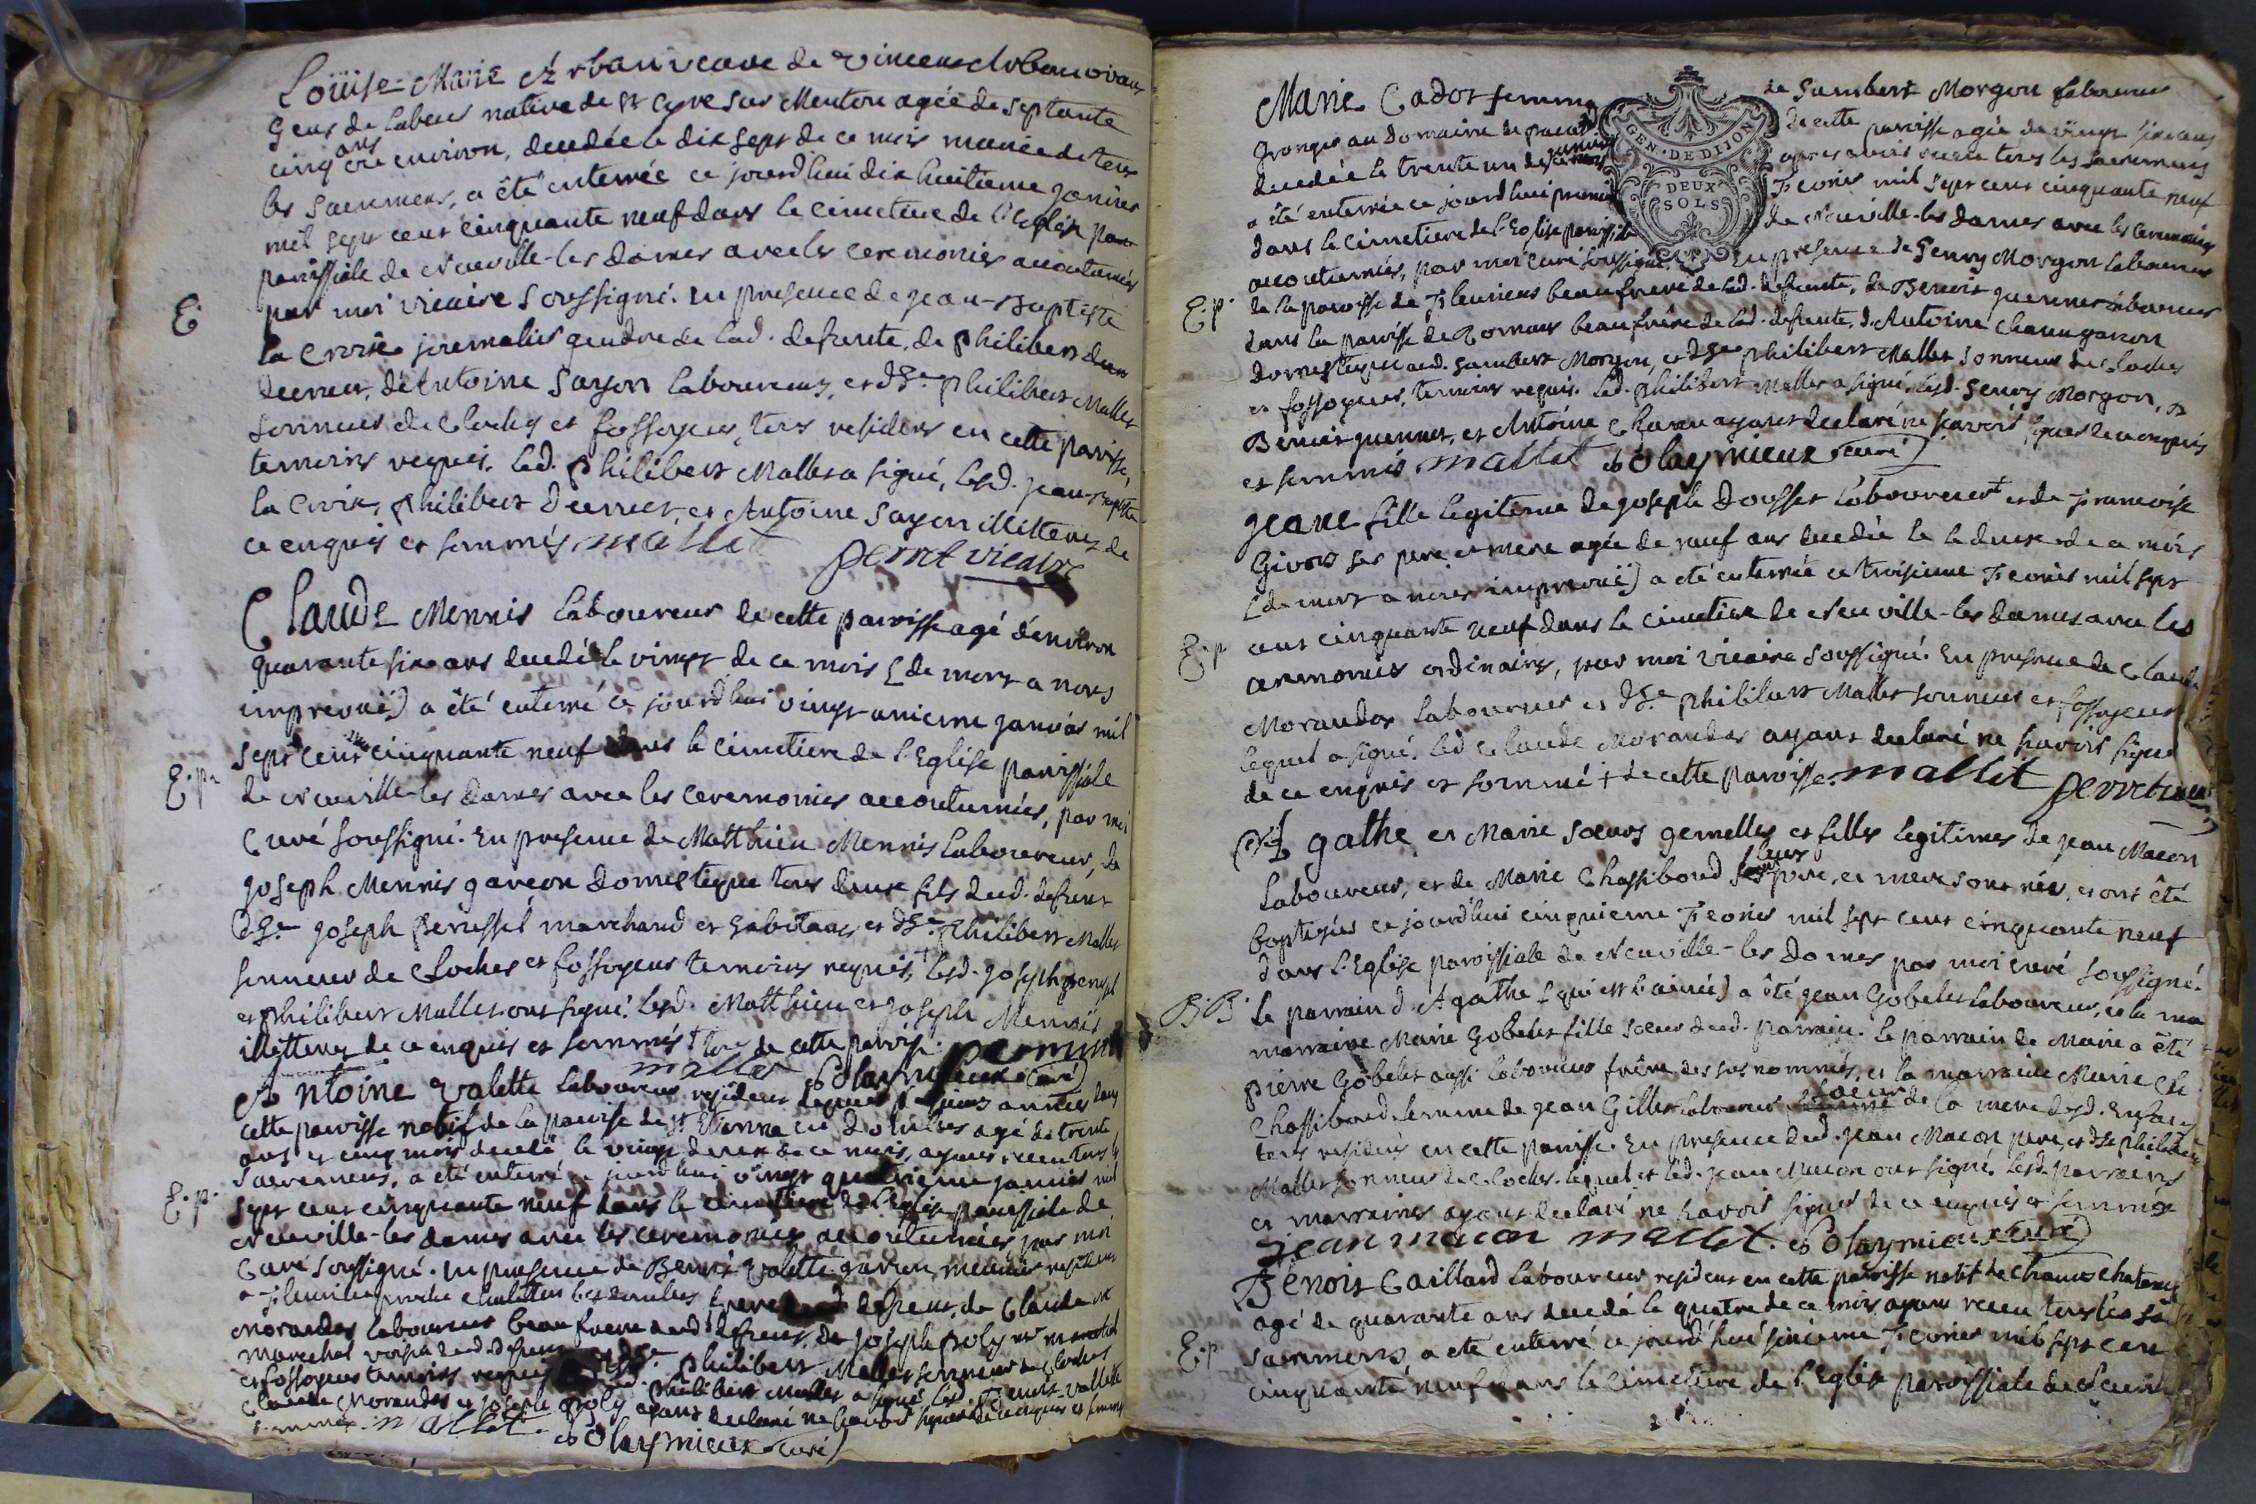 Louise Marie veuve de Vincent
Gens de labeur native de St Cyre sur Menton agée de septante
cinq ans environ, decedée le dix sept de ce mois munie de tous
les sacremens, a êté enterrée ce jourd'hui dix huitieme janvier
mil sept cent cinquante neuf dans le cimetiere de l'Eglise
paroissiale de Neuville-les dames avec les ceremonies accoutumées
E. par moi vicaire soussigné. En presence de jean-Baptiste
la Croix gendre de lad. defunte, de philibert
Antoine Sayon laboureurs, et de Sr philibert Mallet
sonneur de cloches et fossoyeur, tous residens en cette paroisse,
temoins requis. led. philibert Mallet a signé, lesd. jean-Baptiste
la Croix, philibert et Antoine Sayon illitterez de
ce enquis et sommés mallet perret vicaire
Claude Mennis laboureur de cette paroisse agé d'environ
quarante six ans decedé le vingt de ce mois (de mort a nous
imprevuë) a été enterré ce jourd'hui vingt unieme janvier mil
sept cent cinquante neuf dans le cimetiere de l'Eglise paroissiale
E.p. de Neuville-les dames avec les ceremonies accoutumées, par moi
Curé soussigné. En presence de Matthieu Mennis laboureur, de
joseph Mennis garçon domestique tous deux fils dud. defunt
de Sr joseph marchand et habitant et de Sr philibert Mallet
sonneur de cloches et fossoyeur temoins requis, + lesd. joseph
et philibert Mallet ont signé. lesd. Matthieu et joseph Mennis
illitterez de ce enquis et sommés + tous de cette paroisse.
mallet Blaymieux curé
Antoine Valette laboureur resident depuis années dans
cette paroisse natif de la paroisse de St Etienne en Dombes agé de trente
ans et cinq mois decedé le vingt deux de ce mois, ayant receu tous les
sacremens, a été enterré ce jourd'hui vingt quatrieme janvier mil
E.p. sept cent cinquante neuf dans le cimetiere de l'Eglise paroissiale de
Neuville-les dames avec les ceremonies accoutumées par moi
Curé soussigné. En presence de Benoit Valette garçon meunier
frere defunt, de Claude
Morandas laboureur beau frere dud. defunt, de joseph Boly
marechal
et fossoyeur temoins requis philibert Mallet sonneur de cloches
philibert Mallet a signé lesd. Benoit Vallette
Claude Morandas et joseph Boly ayant declaré ne sçavoir signer de ce enquis et
mallet. Blaymieux curé
Marie Cadot femme de Humbert Morgon laboureur
granger au domaine de cette paroisse agée de vingt six ans
decedée le trente un de janvier après avoir receu tous les sacremens
GEN. DE DIJON
DEUX
SOLS
a été enterrée ce jourd'hui premier Fevrier mil sept cent cinquante neuf
dans le cimetiere de l'Eglise paroissiale de Neuville-les dames avec les ceremonies
accoutumées, par moi curé soussigné. En presence de henry Morgon laboureur
E.p. de la paroisse de Fleurieux beau frere de lad. defunte, de Benoit laboureur
dans la paroisse de Romans beau frère de lad. defunte, d'Antoine
domestique aud. humbert Morgon, et de Sr philibert Mallet sonneur de cloches
et fossoyeur, temoins requis. led. philibert Mallet a signé, lesd. henry Morgon,
Benoit et Antoine ayant declaré ne sçavoir signer de ce enquis
et sommés mallet Blaymieux curé
jeane fille legitime de joseph Dousset laboureur + et de Francoise
Givors ses pere et mere agée de neuf ans decedée le deux de ce mois
(de mort a nous imprevuë) a été enterrée ce troisieme Fevrier mil sept
E.p cent cinquante neuf dans le cimetiere de Neuville-les dames avec les
ceremonies ordinaires, par moi vicaire soussigné. En presence de Claude
Morandas laboureur et de Sr philibert Mallet sonneur et fossoyeur
lequel a signé. led Claude Morandas ayant declaré ne sçavoir signer
de ce enquis et sommé + de cette paroisse. mallet perret vicaire
Agathe et Marie soeurs gemelles et filles legitimes de jean Macon
laboureur, et de Marie Chassiboud leurs pere, et mere sont nées, et ont êté
baptisées ce jourd'hui cinquieme Fevrier mil sept cent cinquante neuf
dans l'Eglise paroissiale de Neuville-les Dames par moi curé soussigné.
B.B. le parrain d'Agathe (qui est l'ainée) a été jean Gobelet laboureur, et la ma
marraine Marie Gobelet fille soeur dud. parrain. le parrain de Marie a été
pierre Gobelet aussi laboureur frère des sus nommés, et la marraine Marie
Chassiboud femme de jean Gillet laboureur soeur de la mere desd. Enfans
tous residens en cette paroisse. En presence dud. jean Macon pere, et de Sr philibert
Mallet sonneur de cloches. lequel et led. jean Macon ont signé. lesd. parrains
et marraines ayant declaré ne sçavoir signer de ce enquis et sommés
jean macon mallet. Blaymieux curé
Benoit Gaillard laboureur resident en cette paroisse natif de
agé de quarante ans decedé le quatre de ce mois ayant receu tous les
E.p sacremens, a été enterré ce jourd'hui sixieme Fevrier mil sept cent
cinquante neuf dans le cimetiere de l'Eglise paroissiale de